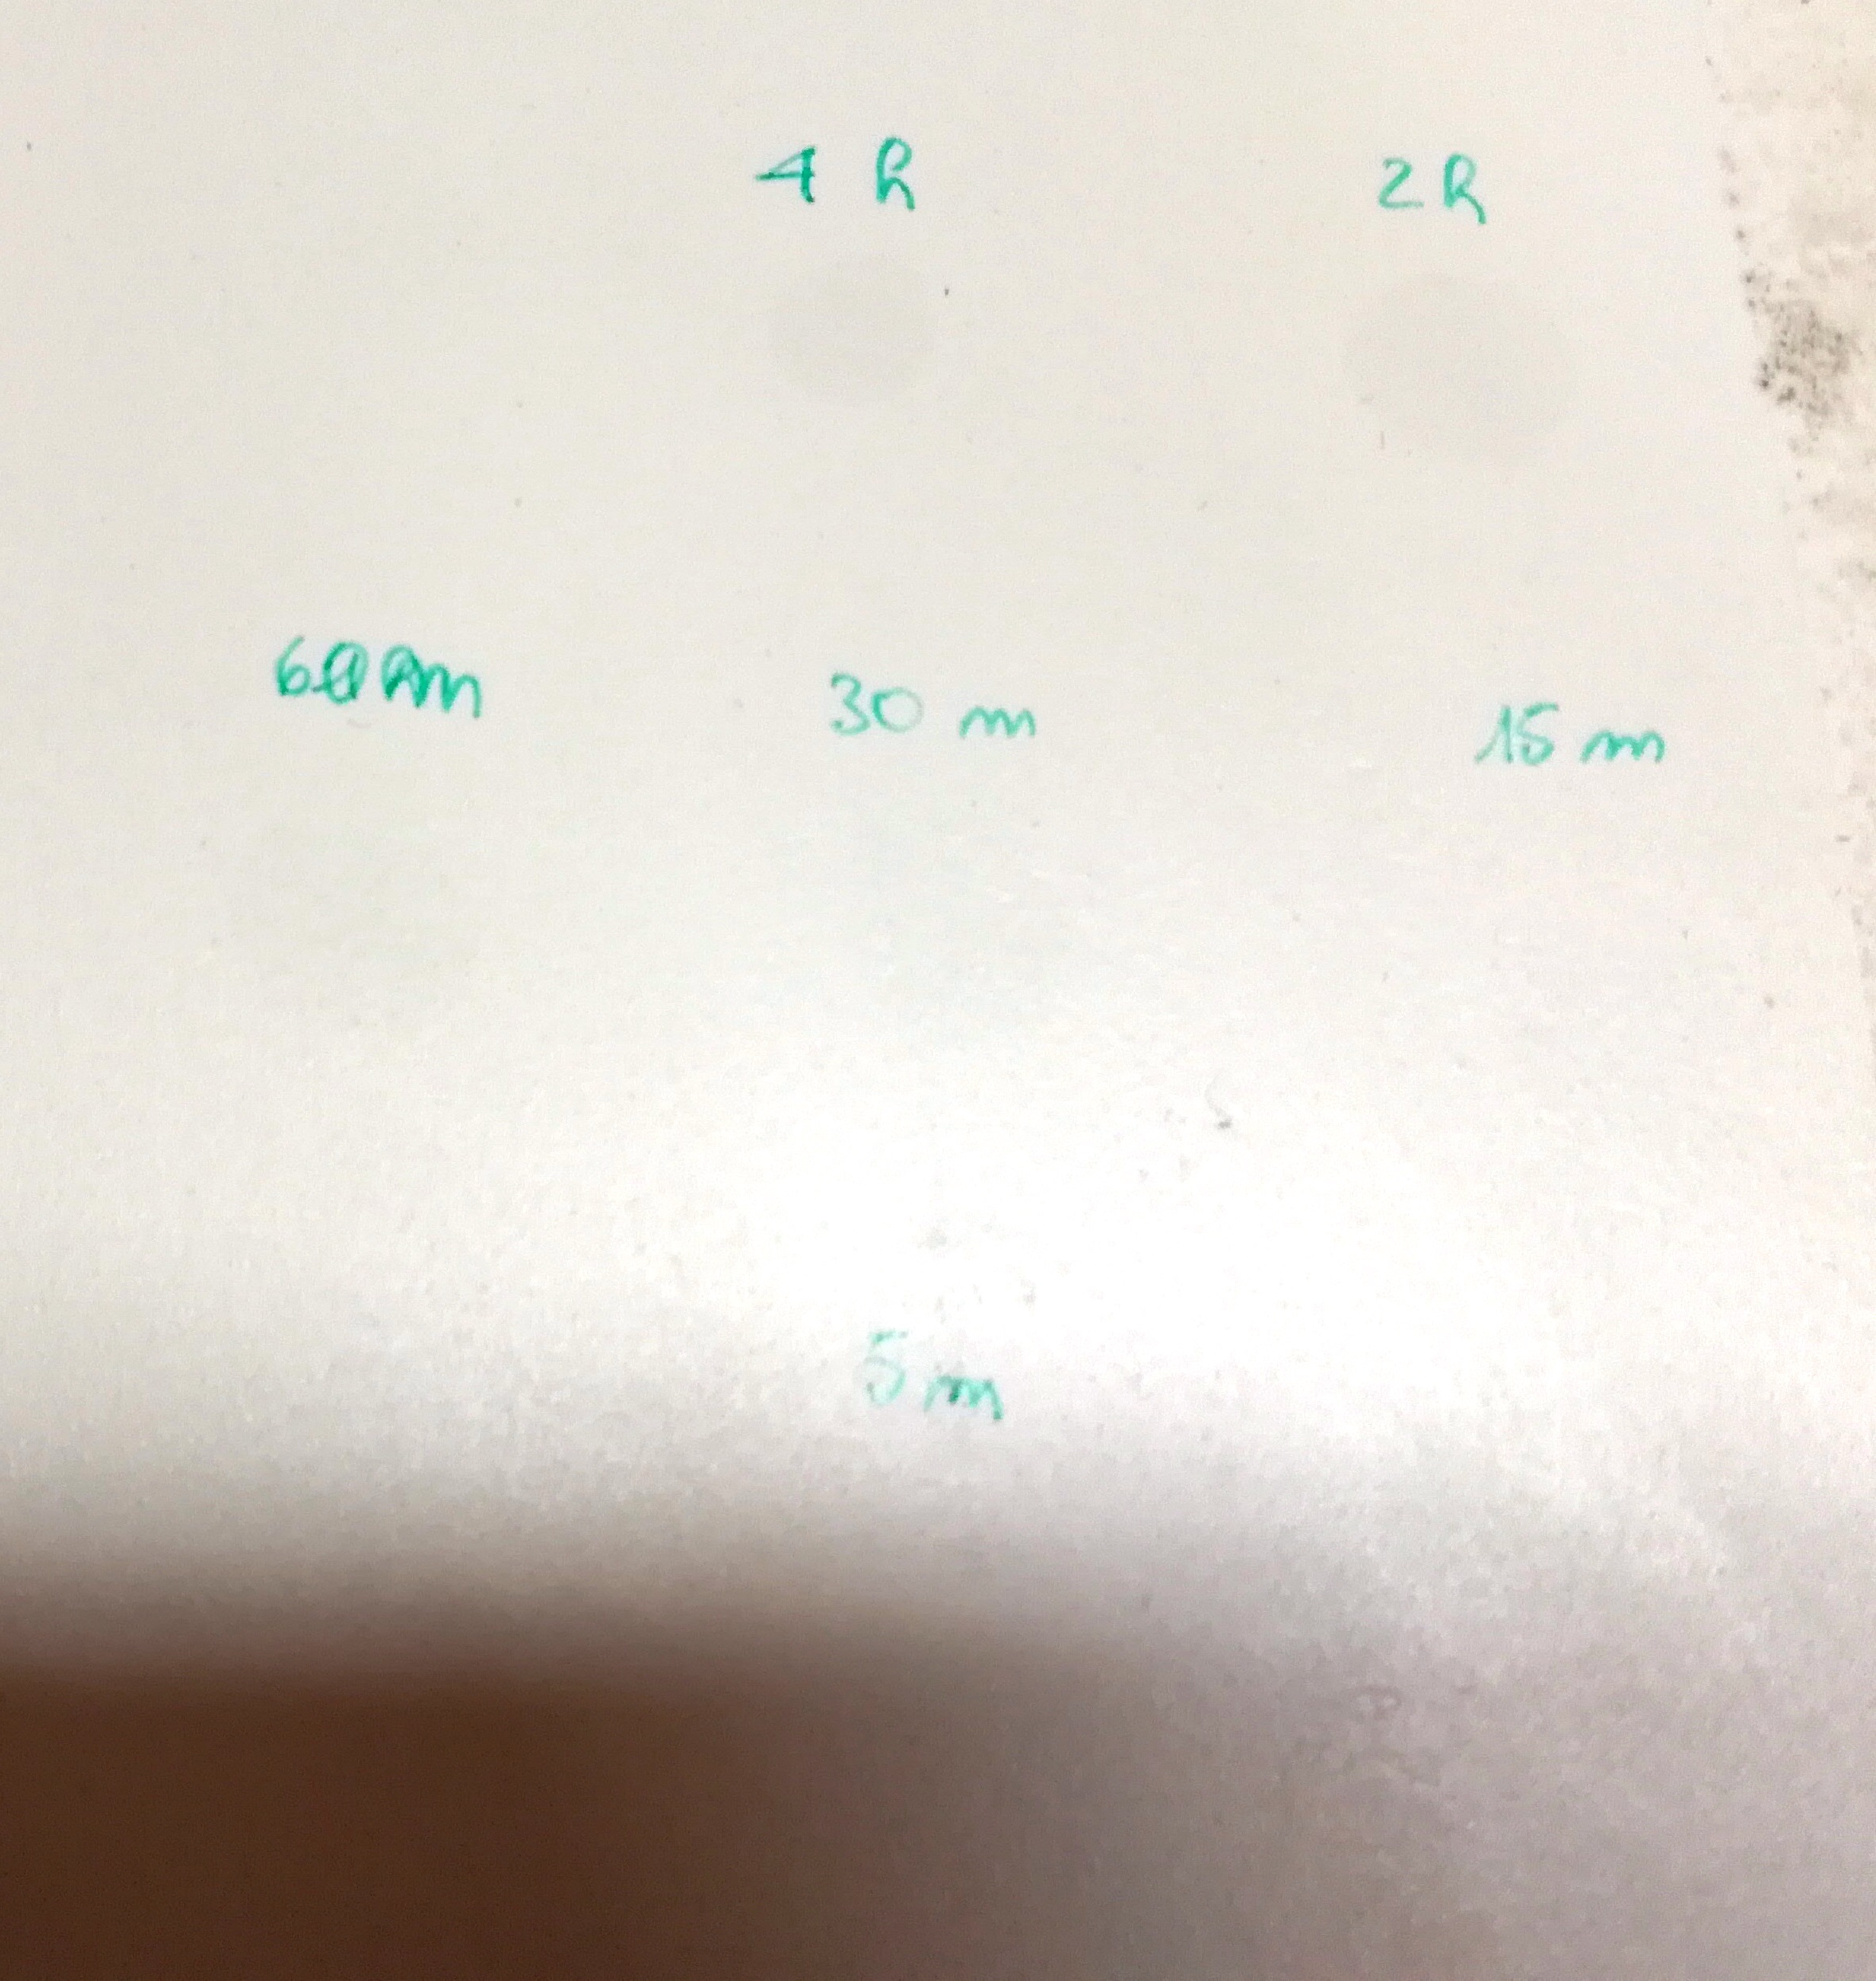 4 h 2h
60m 30 m 15 m
5 m